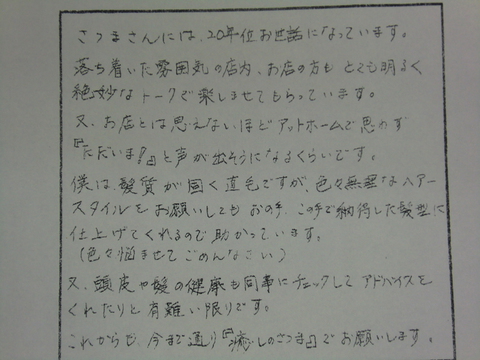 さつまさんには、20年位お世話になっています。
落ち着いた雰囲気の店内、お店の方も とても明るく
絶妙なトークで楽しませてもらっています。
又、お店とは思えないほどアットホームで思わず
『ただいま!』と声が出そうになるくらいです。
僕は、髪質が固く直毛ですが、色々無理なヘアー
スタイルをお願いしても あの手、この手で納得した髪型に
仕上げてくれるので助かっています。
(色々悩ませて ごめんなさい)
又、頭皮や髪の健康も同時にチェックして アドバイスを
くれたりと 有難い限りです。
これからも、今まで通り『癒しのさつま』でお願いします。